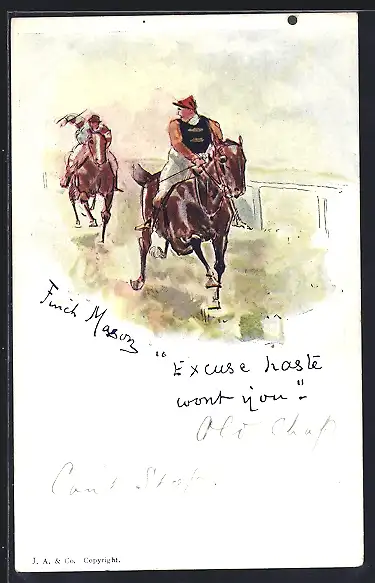 Finch Mason
"Excuse haste
wont you"-
Old Chap
Can't Stop.
J. A. & Co. Copyright.